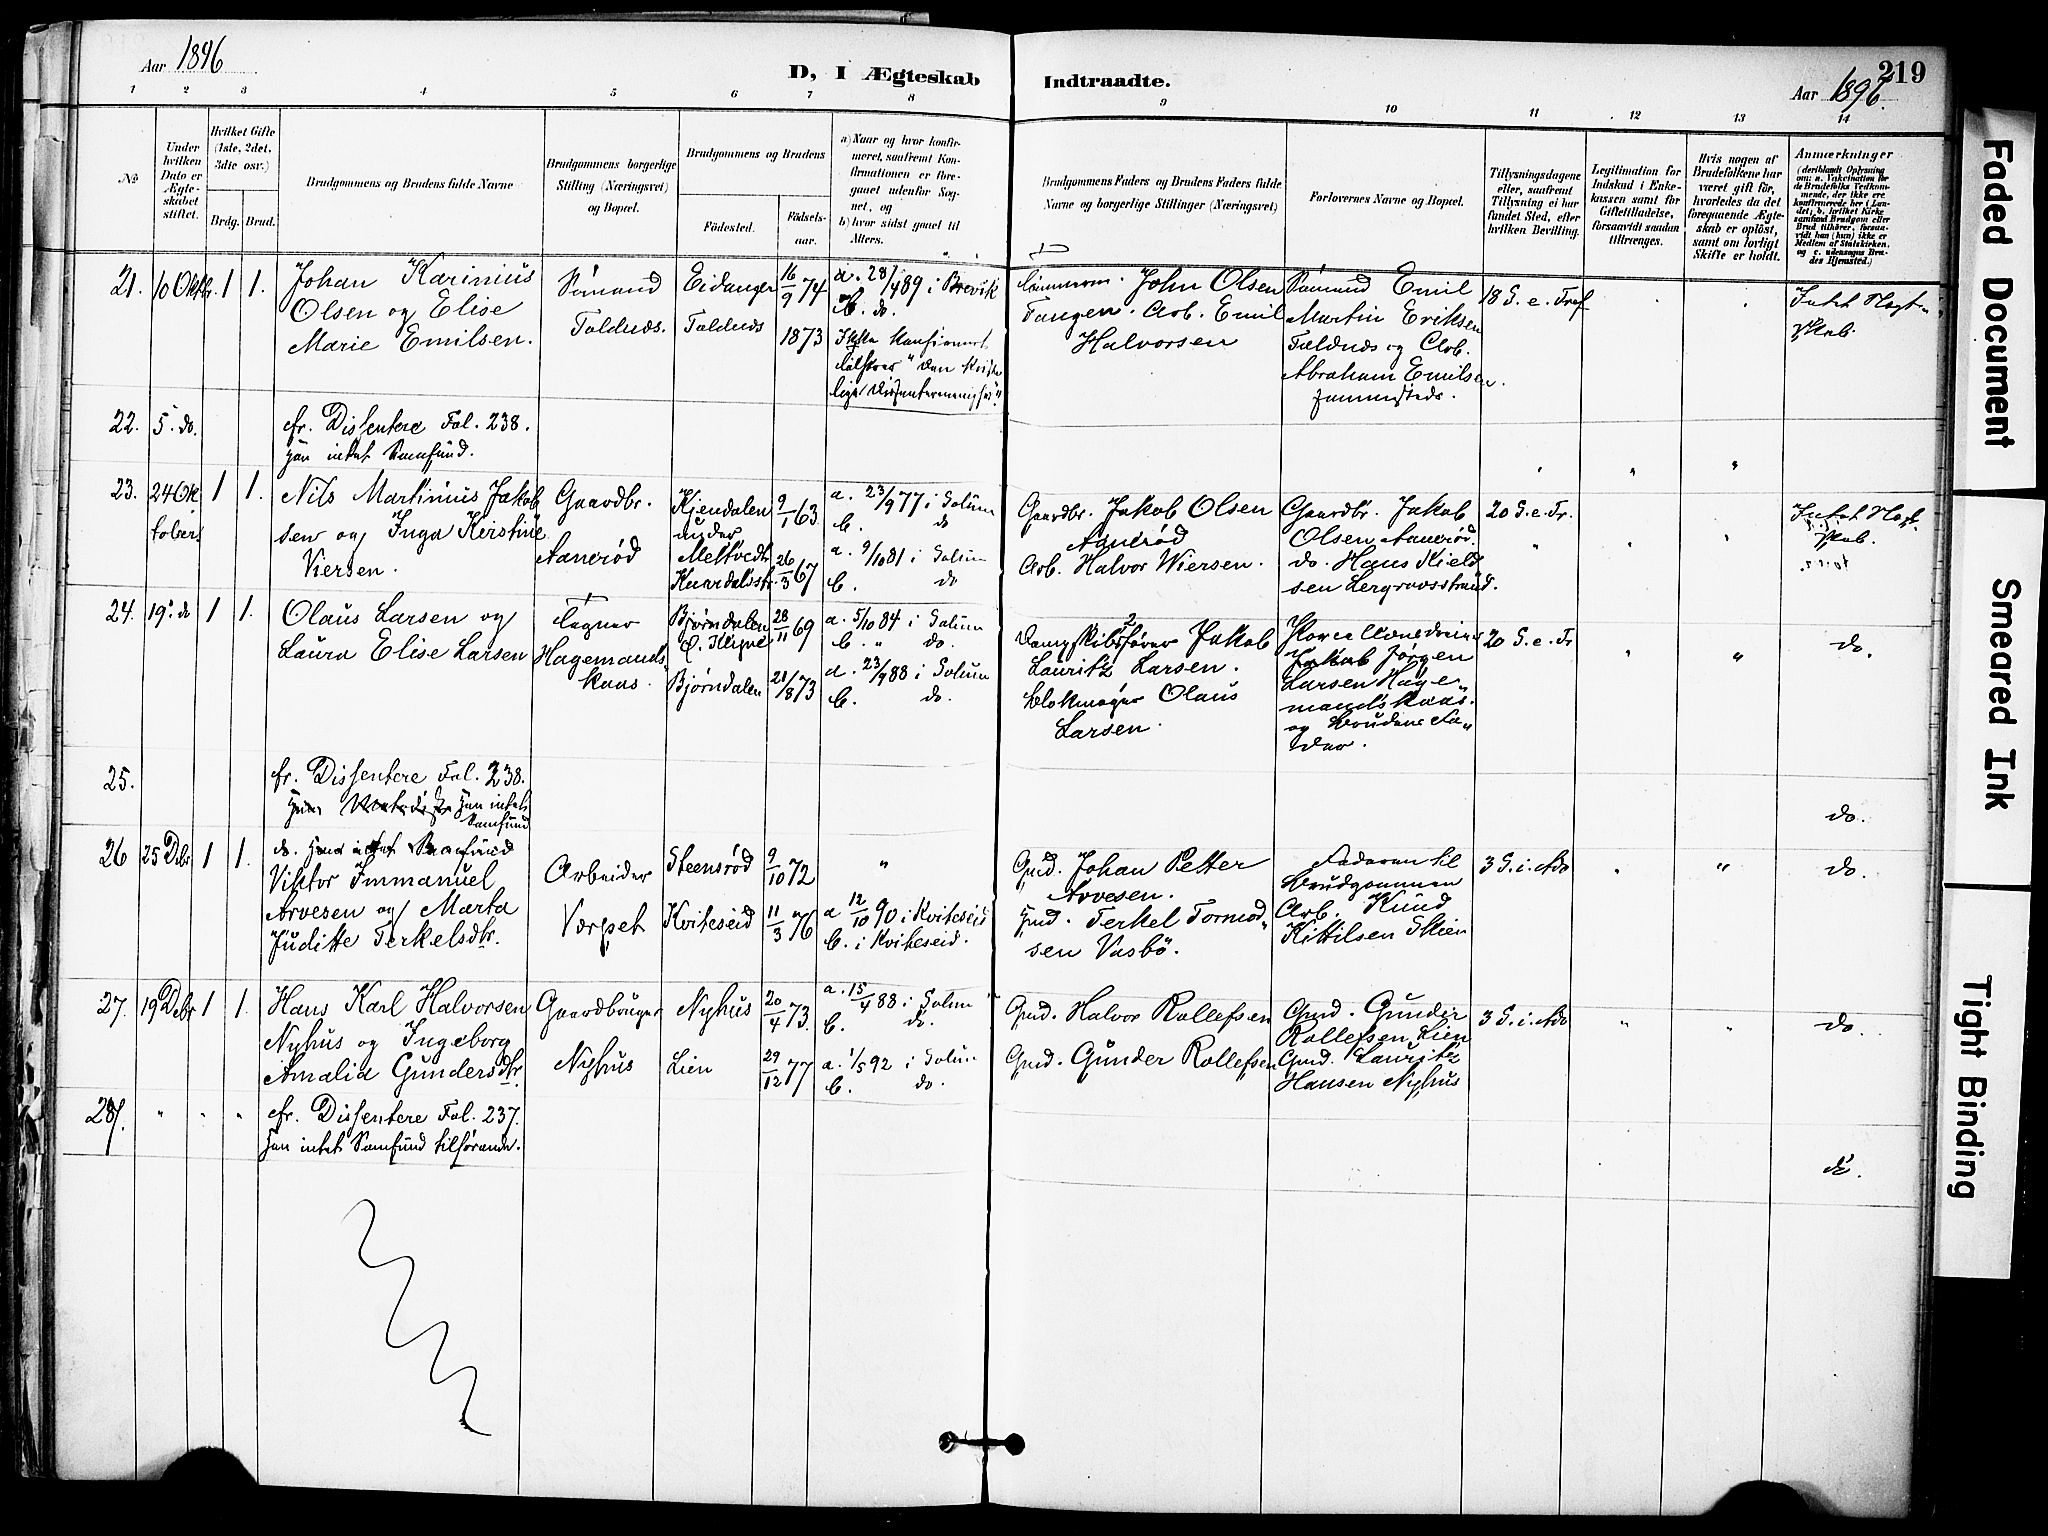 Aar 1896
D, I Ægteskab Indtraadte.
219
Aar 1896.
1 2 3 4 5 6 7 8 9 10 11 12 13 14
No
Under hvilken Dato er Ægteskabet stiftet.
Hvilket Gifte (1ste, 2det, 3die osv.)
Brdg. Brud.
Brudgommens og Brudens fulde Navne
Brudgommens borgerlige Stilling (Næringsvei) og Bopæl.
Brudgommens og Brudens
Fødested.
Fødselsaar.
a) Naar og hvor konfirmeret, saafremt Konfirmationen er foregaaet udenfor Sognet, og
b) hvor sidst gaaet til Alters.
Brudgommens Faders og Brudens Faders fulde Navne og borgerlige Stillinger (Næringsvei)
Forlovernes Navne og Bopæl.
Tillysningsdagene eller, saafremt Tillysning ei har fundet Sted, efter hvilken Bevilling.
Legitimation for Indskud i Enkekassen samt for Giftetilladelse, forsaavidt saadan tiltrænges.
Hvis nogen af Brudefolkene har været gift før, hvorledes da det foregaaende Ægteskab er opløst, samt om lovligt Skifte er holdt.
Anmærkninger
(deriblandt Oplysning om: a. Vakcination for de Brudefolks Vedkommende, der ikke ere konfirmerede her i Landet; b. hvilket Kirkesamfund Brudgom eller Brud tilhører, forsaavidt han (hun) ikke er Medlem af Statskirken, og c. udensogns Brudes Hjemsted.)
21. 10 Oktbr. 1 1.
Johan Karinius
Olsen og Elise
Marie Emilsen.
Sømand
Toldnes.
Eidanger
Toldnes
16/9 74
1873
a. 28/4 89 i Brevik
b. do.
Ikke konfirmert
tilhører "den kristelige Dissentermenighed"
Tømmerm. John Olsen
Tangen. Arb. Emil
Halvorsen
Sømand Emil
Martin Eriksen
Toldnes og Arb.
Abraham Emilsen
sammesteds.
18 S. e. Tref
Intet Slegtskab.
22. 5. do.
cfr. Dissentere Fol. 238.
Han intet Samfund.
23. 24 Oktober 1 1.
Nils Martinius Jakobsen og Inga Kirstine
Viersen.
Gaardbr.
Aanerød
Kjendalen
under
Meltvedt
Knardalsstr.
9/1 63
26/3 67
a. 23/9 77 i Solum
b. do
a. 9/10 81 i Solum
b. do
Gaardbr. Jakob Olsen
Aanerød
Arb. Halvor Wiersen.
Gaardbr. Jakob
Olsen Aanerød.
do. Hans Kjeldsen Lergravsstrand.
20 S. e. Tr.
Intet Slegtskab.
24. 19. do 1 1.
Olaus Larsen og
Laura Elise Larsen
Hagemandskaas.
Bjørndalen
Bjørndalen
28/11 69
21/8 73
a. 5/10 84 i Solum
b. " do.
a. 23/9 88 i Solum
b. do.
Dampskibsfører Jakob
Lauritz Larsen.
Blokmager Olaus
Larsen.
Jakob Jørgen
Larsen Hagemandskaas.
og Brudens Fader.
20 S. e. Tr
do.
25.
cfr. Dissentere Fol. 238.
Han intet Samfund
do.
26 25 Dcbr 1 1.
do. Han intet Samfund
Viktor Immanuel
Arvesen og Marta
Juditte Terkelsdtr.
Arbeider
Værpet
Steensrød
Kviteseid
9/10 72
11/3 76
"
a 12/10 90 i Kviteseid
b. i Kviteseid.
Gmd. Johan Petter
Arvesen.
Gmd. Terkel Tormodsen Vasbø.
Faderen til
Brudgommen
Arb. Knud
Kittilsen Skien
3 S. i. Adv
do.
27. 19 Debr 1 1.
Hans Karl Halvorsen
Nyhus og Ingeborg
Amalia Gundersdtr.
Gaardbruger
Nyhus
Nyhus
Lien
20/4 73.
29/12 77
a. 15/4 88 i Solum
b. do.
a. 1/5 92 i Solum
b. do.
Gmd. Halvor Rollefsen
Gmd. Gunder Rollefsen
Gmd. Gunder
Rollefsen Lien
Gmd. Lauritz
Hansen Nyhus
3 S. i. Adv
do.
28.
cfr. Dissentere Fol. 237.
Han intet Samfund tilhørende.
do.
Faded Document
Smeared Ink
Tight Binding